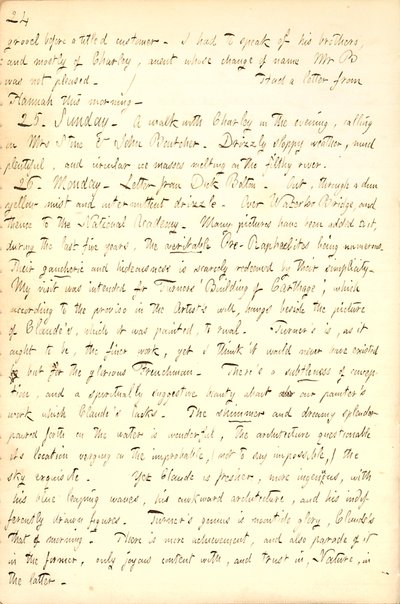 24
grovel before a titled customer. I had to speak of his brothers,
and mostly of Charley, anent whose change of name Mr B
was not pleased. / Had a letter from
Hannah this morning.
25. Sunday. A walk with Charley in the evening, calling
on Mrs & John Boutcher. Drizzly sloppy weather, mud
plentiful, and circular ice masses melting on the filthy river.
26. Monday. Letter from Dick Bolton. Out, through a dun
yellow mist and intermittent drizzle. Over Waterloo Bridge and
thence to the National Academy. Many pictures have been added &c,
during the last five years, the veritable Pre-Raphaelites being numerous.
Their gaucherie and hideousness is scarcely redeemed by their simplicity.
My visit was intended for Turners' "Building of Carthage", which
according to the proviso in the Artist's will, hangs beside the picture
of Claude's, which it was painted, to rival. Turner's is, as it
ought to be, the finer work, yet I think it would never have existed
but for the glorious Frenchman. There's a subtleness of concep-
tion, and a spiritually suggestive beauty about our painter's
work which Claude's lacks. The shimmer and dreamy splendor
poured forth on the water is wonderful, the architecture questionable
its location verging on the improbable, (not to say impossible,) the
sky exquisite. Yet Claude is fresher, more ingenuous, with
his blue leaping waves, his awkward architecture, and his indif-
ferently drawn figures. Turner's genius is noontide glory, Claude's
that of morning. There is more achievement, and also parade of it
in the former, only joyous content with, and trust in, Nature, in
the latter.